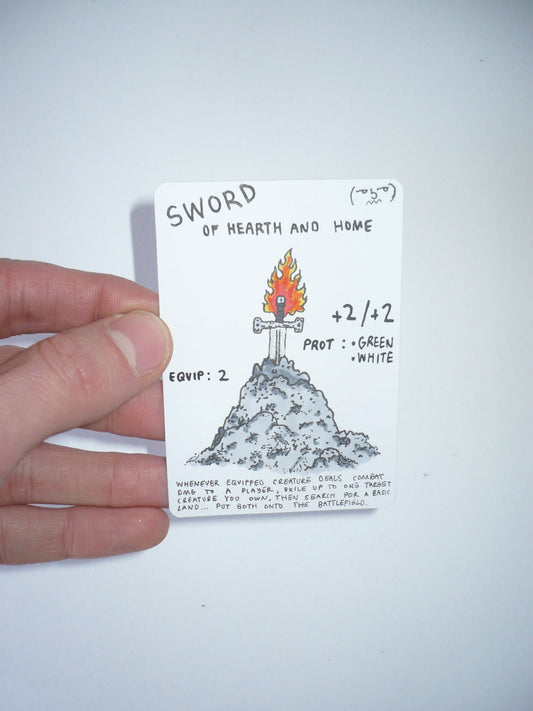 SWORD
OF HEARTH AND HOME
+2/+2
PROT : • GREEN
• WHITE
EQUIP : 2
WHENEVER EQUIPPED CREATURE DEALS COMBAT
DMG TO A PLAYER, EXILE UP TO ONE TARGET
CREATURE YOU OWN, THEN SEARCH FOR A BASIC
LAND... PUT BOTH ONTO THE BATTLEFIELD.